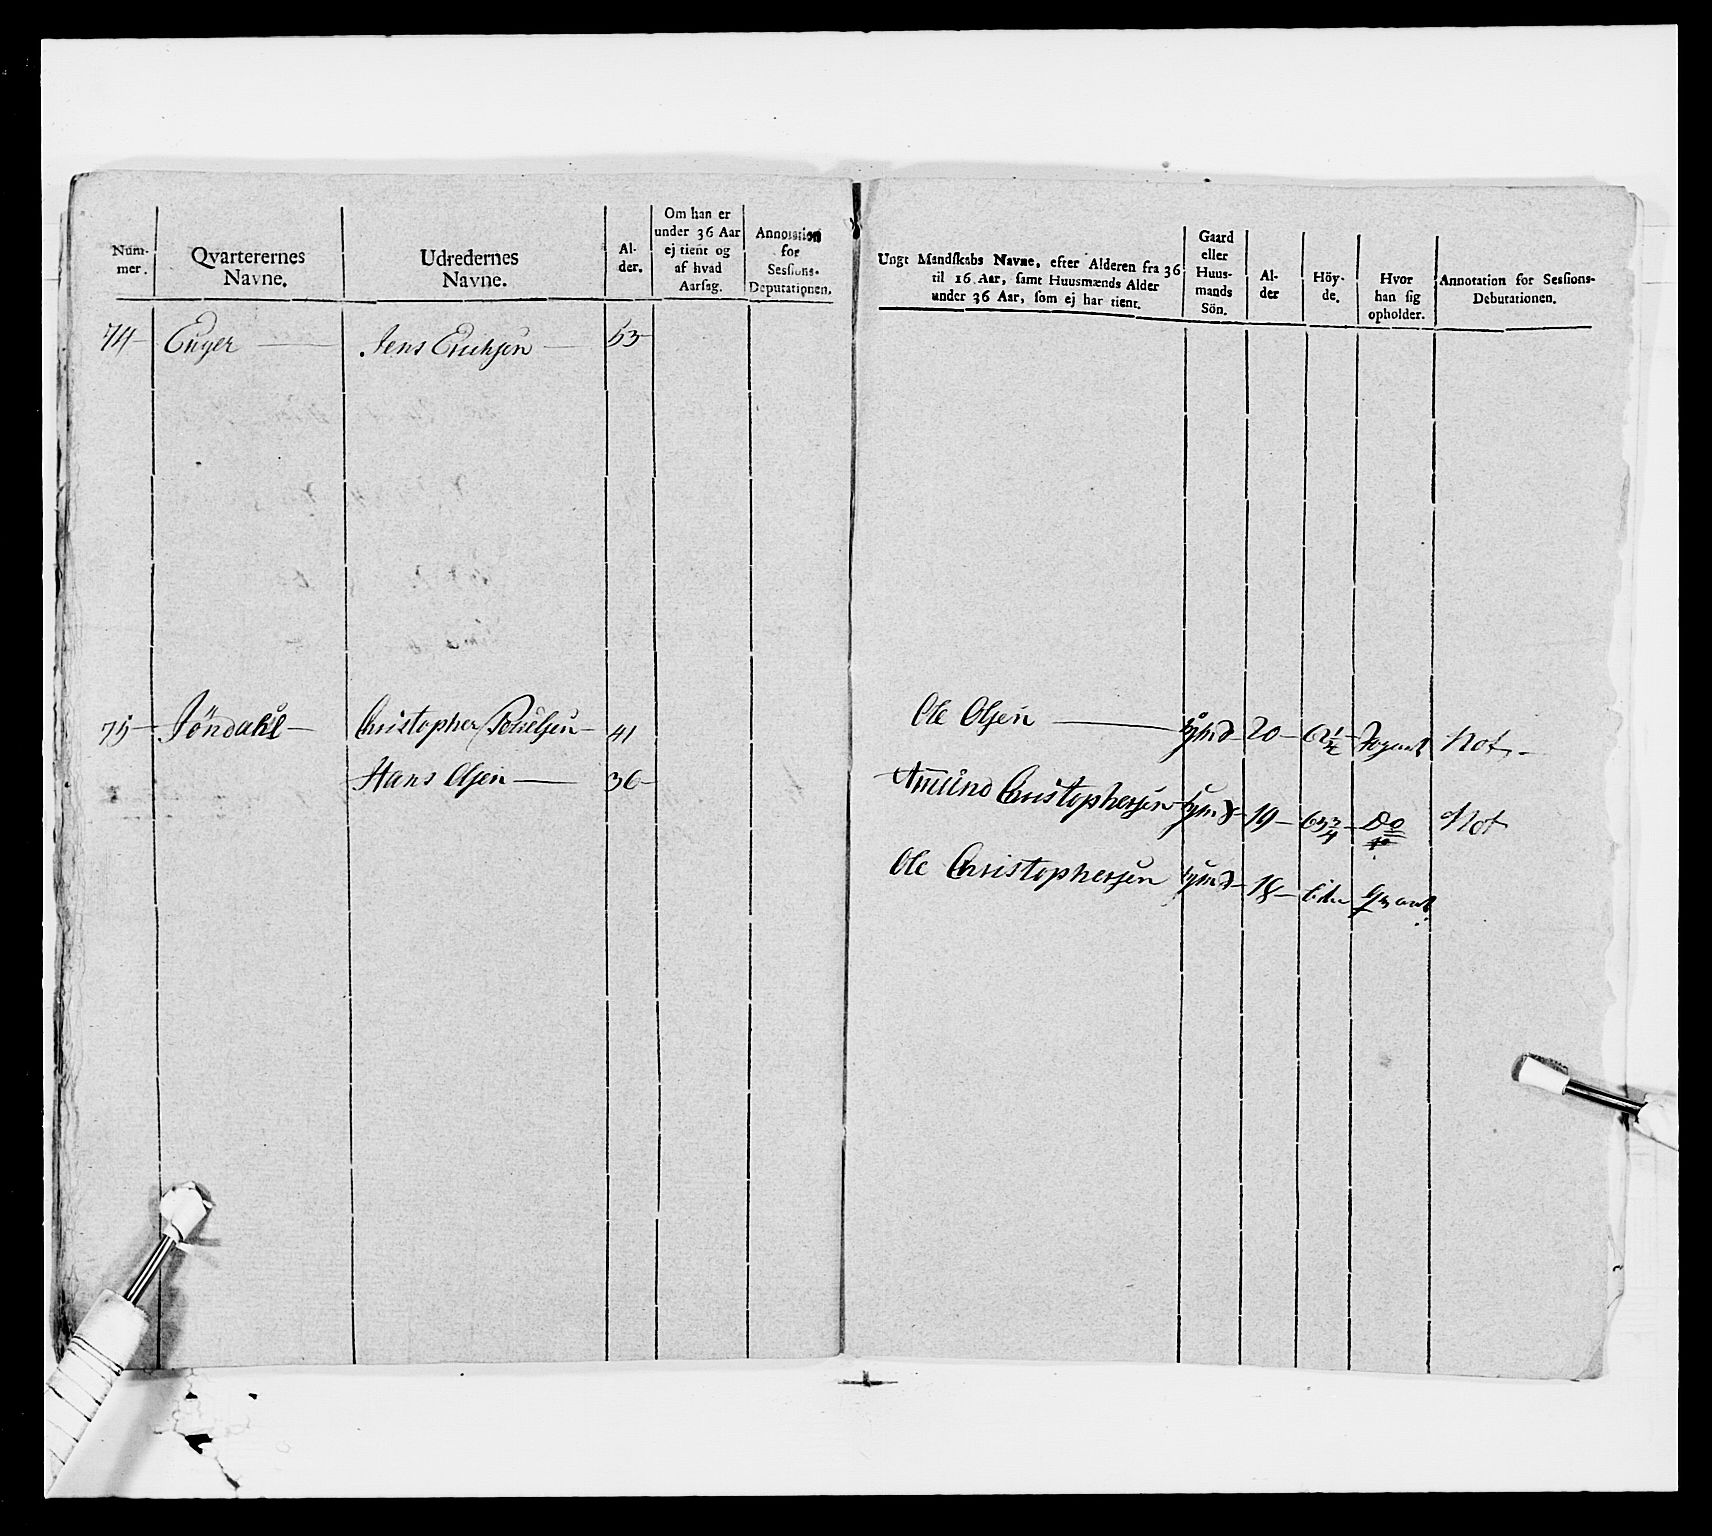 Num-
mer.
Qvarterernes
Navne.
Udredernes
Navne.
Al-
der.
Om han er
under 36 Aar
ej tient og
af hvad
Aarsag.
Annotation
for
Sessions-
Deputationen.
74 Enger Jens Erichsen 53
75 Jöndahl Christopher Povelsen 41
Hans Olsen 36
Ungt Mandskabs Navne, efter Alderen fra 36
til 16 Aar, samt Huusmænds Alder
under 36 Aar, som ej har tient.
Gaard
eller
Huus-
mands
Sön.
Al-
der
Höy-
de.
Hvor
han sig
opholder.
Annotation for Sessions-
Debutationen.
Ole Olsen 20 62 1/2 Not
Amund Christophersen 19 63 3/4 Do Not
Ole Christophersen 18